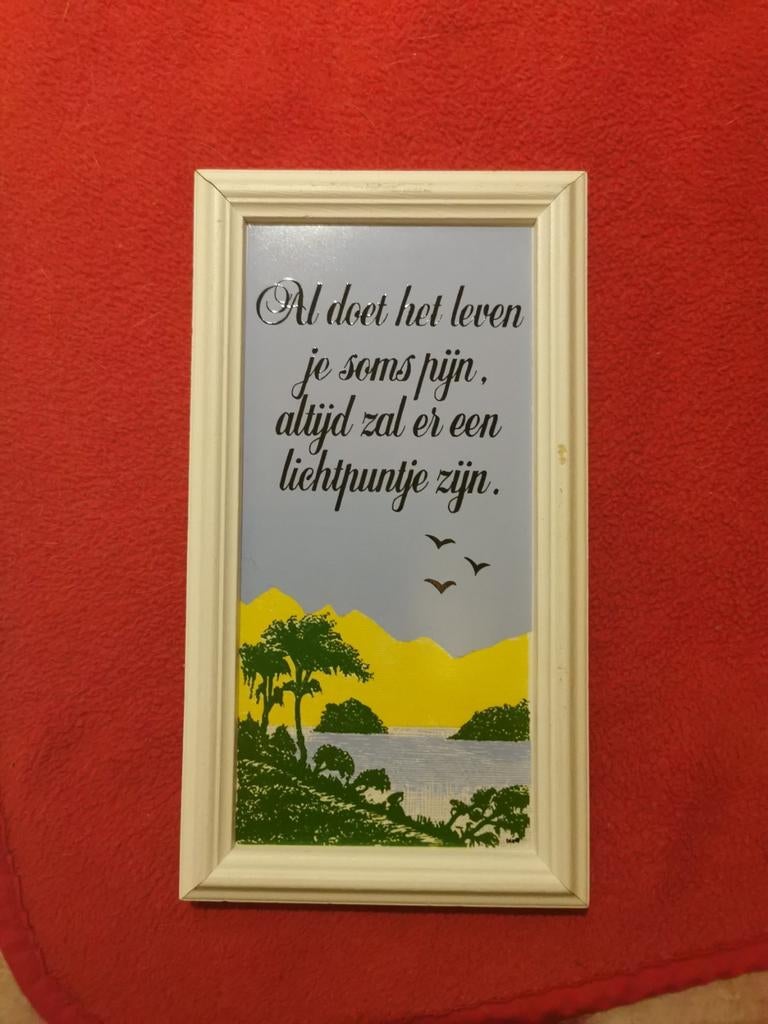 Al doet het leven
je soms pijn,
altijd zal er een
lichtpuntje zijn.